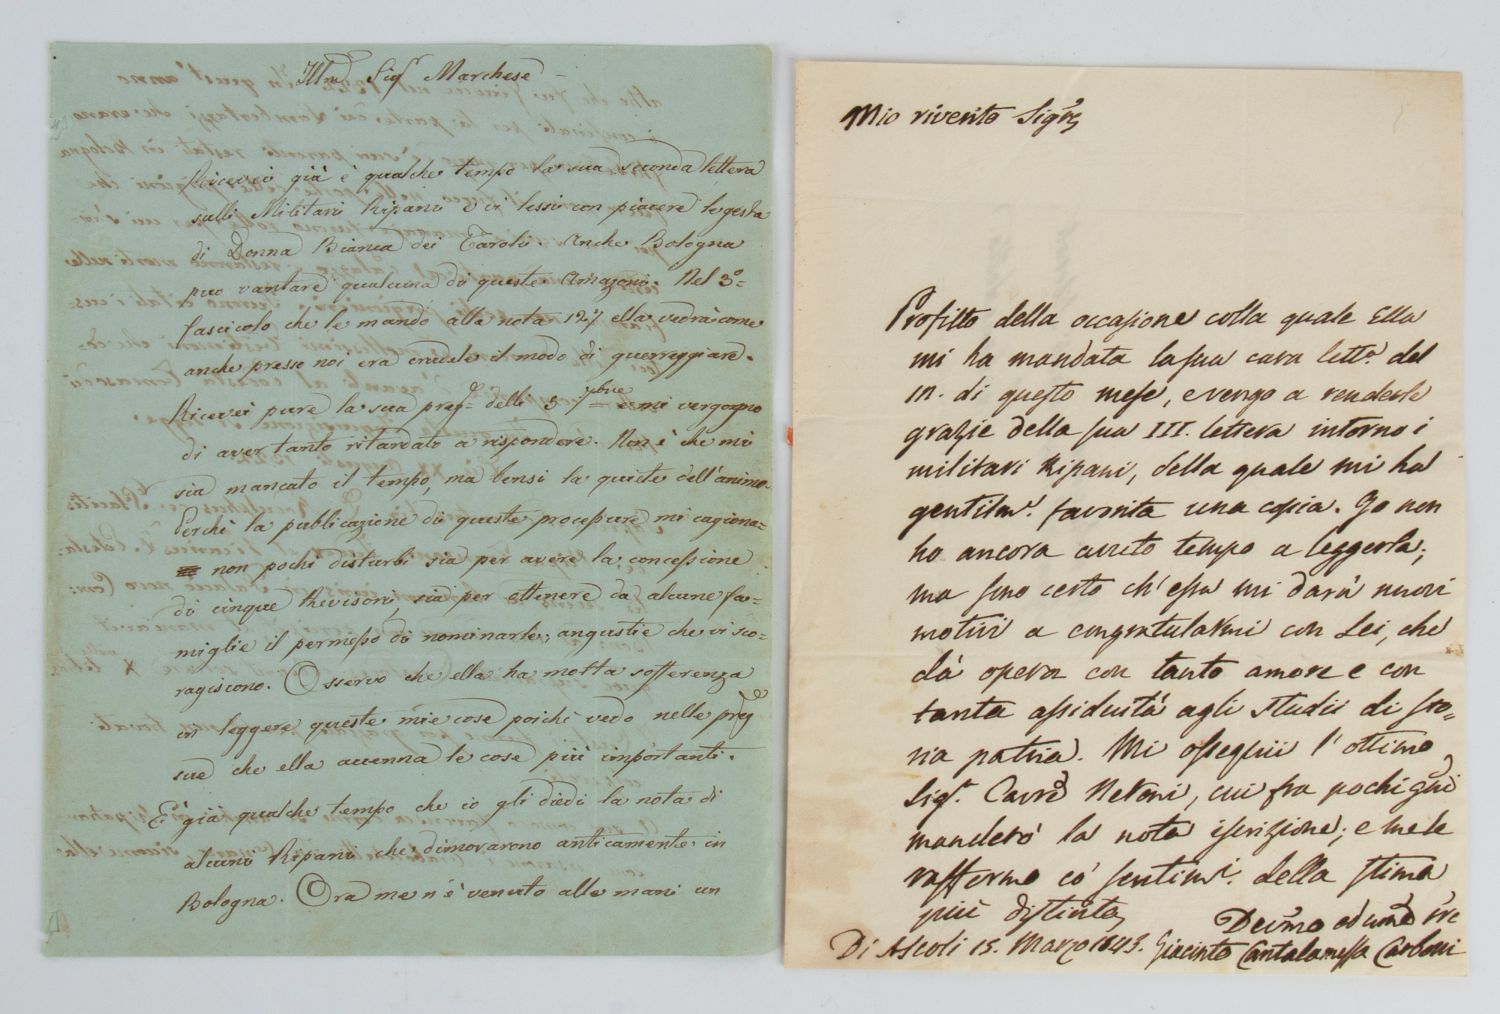 Sig.r Marchese
Ricevei già è qualche tempo la sua seconda lettera
sulli Militari Ripani e vi lessi con piacere le gesta
di Donna Bianca dei Taroli. Anche Bologna
puo vantare qualcuna di queste Amazoni. Nel 3.º
fascicolo che le mando alla nota 127 ella vedrà come
anche presso noi era crudele il modo di guerreggiare.
Ricevei pure la sua preg. delli 3 e mi vergogno
di aver tanto ritardato a rispondere. Non è che mi
sia mancato il tempo, ma bensi la quiete dell'animo.
Perchè la pubblicazione di queste procepure mi cagiona=
non pochi disturbi sia per avere la concessione
di cinque Revisori, sia per ottenere da alcune fa=
miglie il permesso di nominarle; angustie che vi sco=
ragiscono. Osservo che ella ha molta sofferenza
in leggere queste mie cose poichè vedo nelle preg
sue che ella accenna le cose più importanti.
E già qualche tempo che io gli diedi la nota di
alcuni Ripani che dimorarono anticamente in
Bologna. Ora me n'è venuto alle mani un
Mio riverito Sig.re
Profitto della occasione colla quale Ella
mi ha mandata la sua cara lett.a del
di questo mese, e vengo a renderle
grazie della sua III. lettera intorno i
militari Ripani, della quale mi ha
gentilm. favorita una copia. Io non
ho ancora avuto tempo a leggerla;
ma sono certo ch'essa mi darà nuovi
motivi a congratularmi con Lei, che
dà opera con tanto amore e con
tanta assiduità agli studii di sto=
ria patria. Mi ossequii l'ottimo
Sig.r Cav.re Netoni, cui fra pochi
manderò la nota iscrizione; e me le
raffermo co' sentim. della stima
più distinta
Di Ascoli 15. Marzo 1843.
Giacinto Cantalamessa Carboni